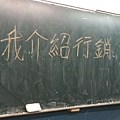 我介紹行銷